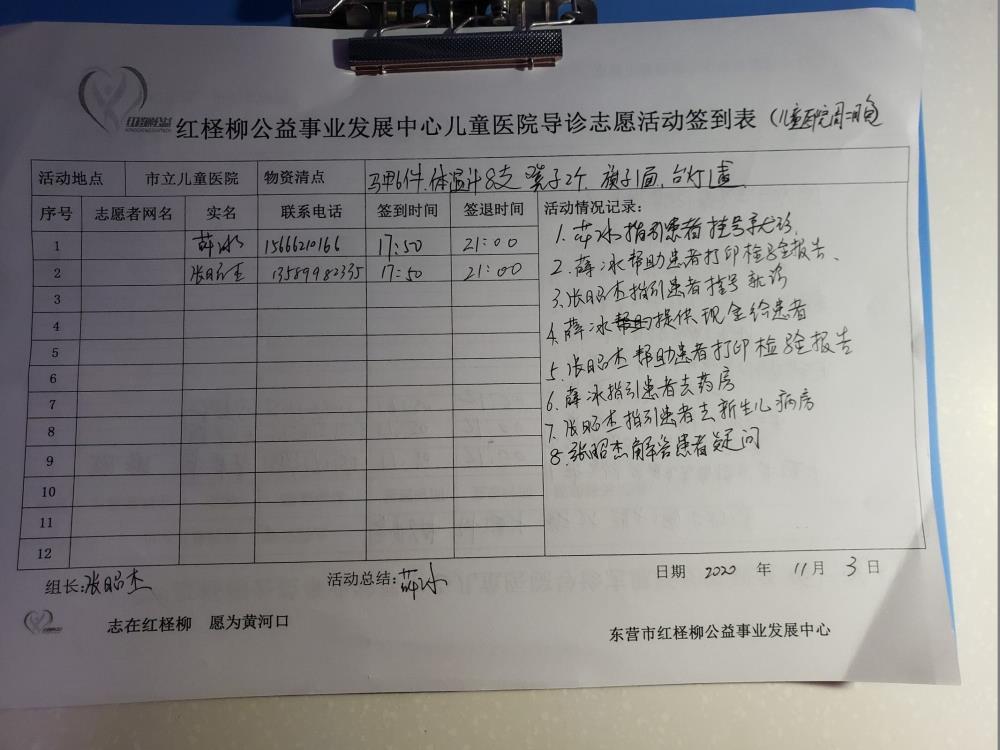 红柽柳公益事业发展中心儿童医院导诊志愿活动签到表
活动地点 市立儿童医院 物资清点 马甲6件.体温计8支 凳子2个 旗子1面.台灯1盏
序号 志愿者网名 实名 联系电话 签到时间 签退时间 活动情况记录:
1 薛冰 15666210166 17:50 21:00
2 张昭杰 13589982335 17:50 21:00
3
4
5
6
7
8
9
10
11
12
1.薛冰指引患者挂号就诊.
2.薛冰帮助患者打印检验报告、
3.张昭杰指引患者挂号就诊
4.薛冰提供现金给患者
5.张昭杰帮助患者打印检验报告
6.薛冰指引患者去药房
7.张昭杰指引患者去新生儿病房
8.张昭杰解答患者疑问
组长:张昭杰 活动总结:薛冰 日期 2020 年 11月 3日
志在红柽柳 愿为黄河口
东营市红柽柳公益事业发展中心